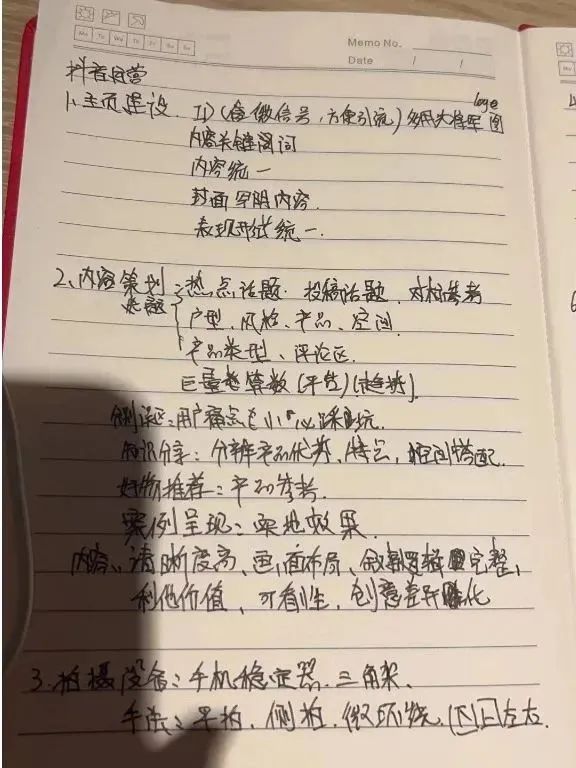 Mo Tu We Th Fr Sa Su
Memo No.
Date / /
抖音运营
loge
1、主页建设. ID(含微信号,方便引流) 图
内容关键词
内容统一
封面 内容.
表现形式统一.
2、内容策划
选题
热点话题. 投稿话题. 对标参考
户型、风格、产品、空间.
产品类型、评论区.
巨量 算数 (平台)(趋势).
用户痛点 坑.
知识分享: 分辨产品优势、特点, 空间搭配.
好物推荐: 产品参考.
案例呈现: 实地效果.
内容、清晰度高、画面布局、叙事逻辑 完整、
利他价值、可看性、创意差异 化
3、拍摄设备: 手机稳定器. 三角架、
手法: 平拍. 侧拍. 微环绕. 左右.